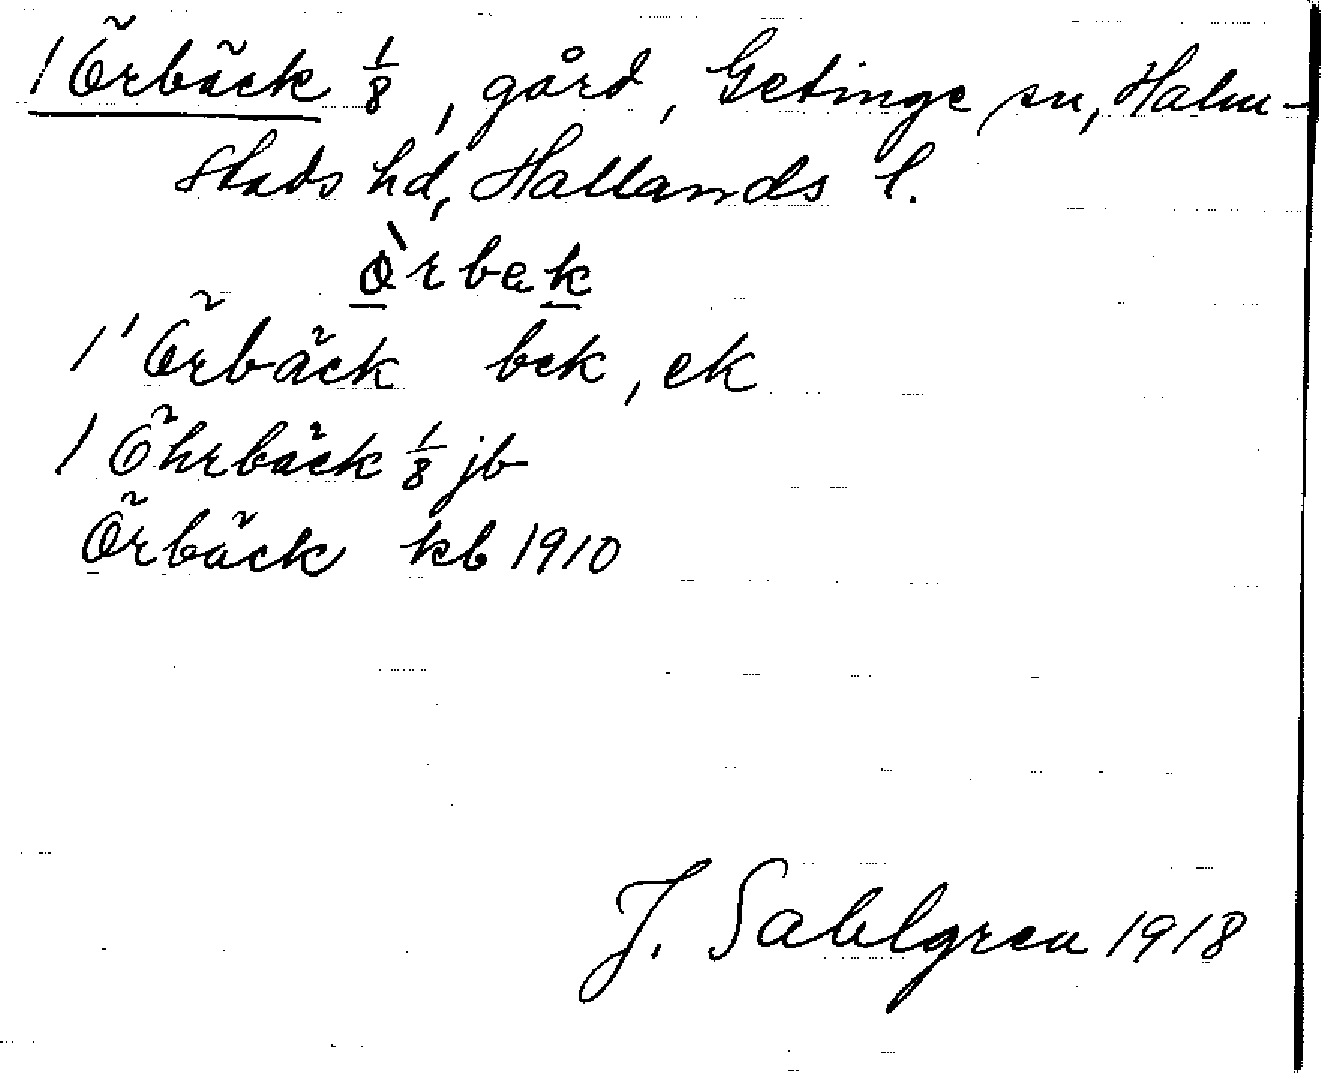 1 Örbäck 1/8, gård, Getinge sn, Halm-
stads hd, Hallands l.
ò̱rbeḵ
1 Örbäck bek, ek
1 Öhrbäck 1/8 jb
Örbäck kb 1910
J. Sahlgren 1918